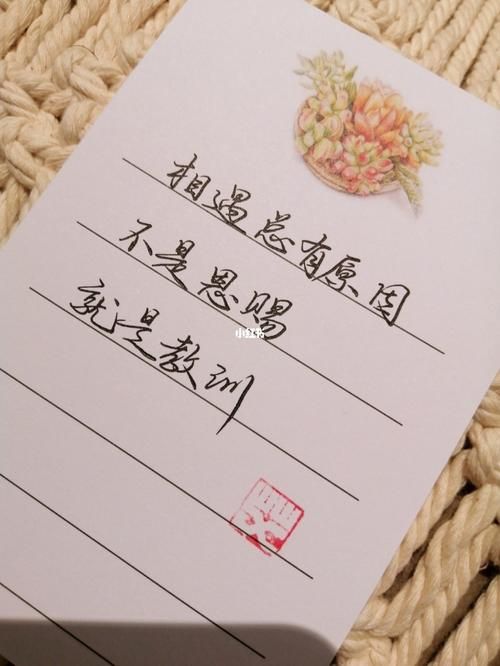 相遇总有原因
不是恩赐
就是教训
小红书